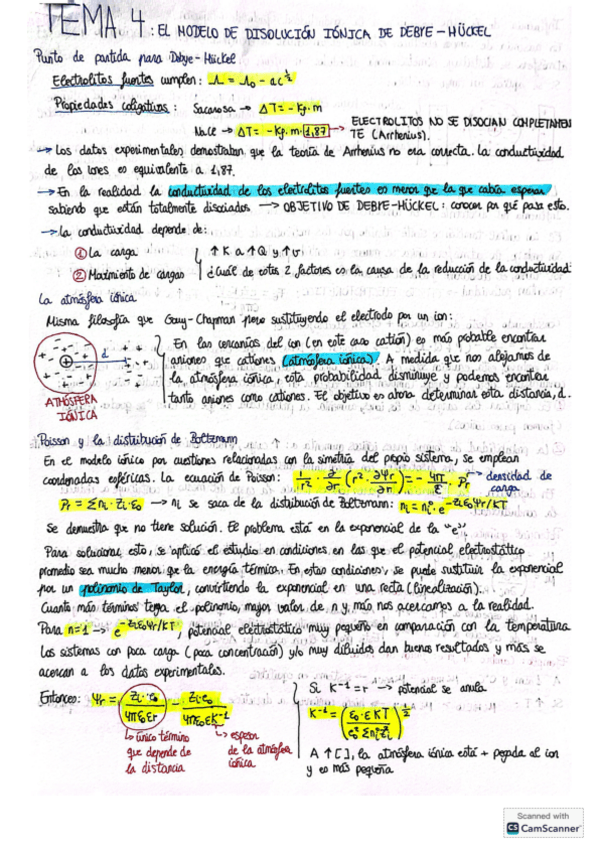 TEMA 4: EL MODELO DE DISOLUCIÓN IÓNICA DE DEBYE-HÜCKEL
Punto de partida para Debye-Hückel
Electrolitos fuertes cumplen: Λ = Λ₀ - ac^½
Propiedades coligativas: Sacarosa → ΔT = - Kf · m
NaCl → ΔT = - Kf · m · 1,87 → ELECTROLITOS NO SE DISOCIAN COMPLETAMENTE (Arrhenius).
→ Los datos experimentales demostraban que la teoría de Arrhenius no era correcta. La conductividad
de los iones es equivalente a 1,87.
→ En la realidad la conductividad de los electrolitos fuertes es menor que la que cabía esperar
sabiendo que están totalmente disociados → OBJETIVO DE DEBYE-HÜCKEL: conocer por qué pasa esto.
→ La conductividad depende de:
① La carga
② Movimiento de cargas
↑ K a ↑ Q y ↑ v
¿Cuál de estos 2 factores es la causa de la reducción de la conductividad?
La atmósfera iónica
Misma filosofía que Gouy-Chapman pero sustituyendo el electrodo por un ion:
d
ATMÓSFERA
IÓNICA
En las cercanías del ion (en este caso catión) es más probable encontrar
aniones que cationes (atmósfera iónica). A medida que nos alejamos de
la atmósfera iónica, esta probabilidad disminuye y podemos encontrar
tanto aniones como cationes. El objetivo es ahora determinar esta distancia, d.
Poisson y la distribución de Boltzmann
En el modelo iónico por cuestiones relacionadas con la simetría del propio sistema, se emplean
coordenadas esféricas. La ecuación de Poisson: 1/r² · ∂/∂r (r² · ∂Ψr/∂r) = - 4π/ε · ρr → densidad de
carga
ρr = Σni · Zi · e₀ → ni se saca de la distribución de Boltzmann: ni = ni° · e^-Zie₀Ψr/KT
Se demuestra que no tiene solución. El problema está en la exponencial de la "e"
Para solucionar esto, se aplicó el estudio en condiciones en las que el potencial electrostático
promedio sea mucho menor que la energía térmica. En estas condiciones, se puede sustituir la exponencial
por un polinomio de Taylor, convirtiendo la exponencial en una recta (linealización).
Cuanto más términos tenga el polinomio, mayor valor de n y más nos acercamos a la realidad.
Para n=1 → e^-Zie₀Ψr/KT, potencial electrostático muy pequeño en comparación con la temperatura
Los sistemas con poca carga (poca concentración) y/o muy diluidos dan buenos resultados y más se
acercan a los datos experimentales.
Entonces: Ψr = Zi·e₀/4πε₀εr - Zi·e₀/4πε₀εK⁻¹
↳ único término
que depende de
la distancia
↳ espesor
de la atmósfera
iónica
Si K⁻¹ = r → potencial se anula
K⁻¹ = (ε₀·εKT/e₀²Σni°Zi²)^½
A ↑ [ ], la atmósfera iónica está + pegada al ion
y es más pequeña
Scanned with
CS CamScanner